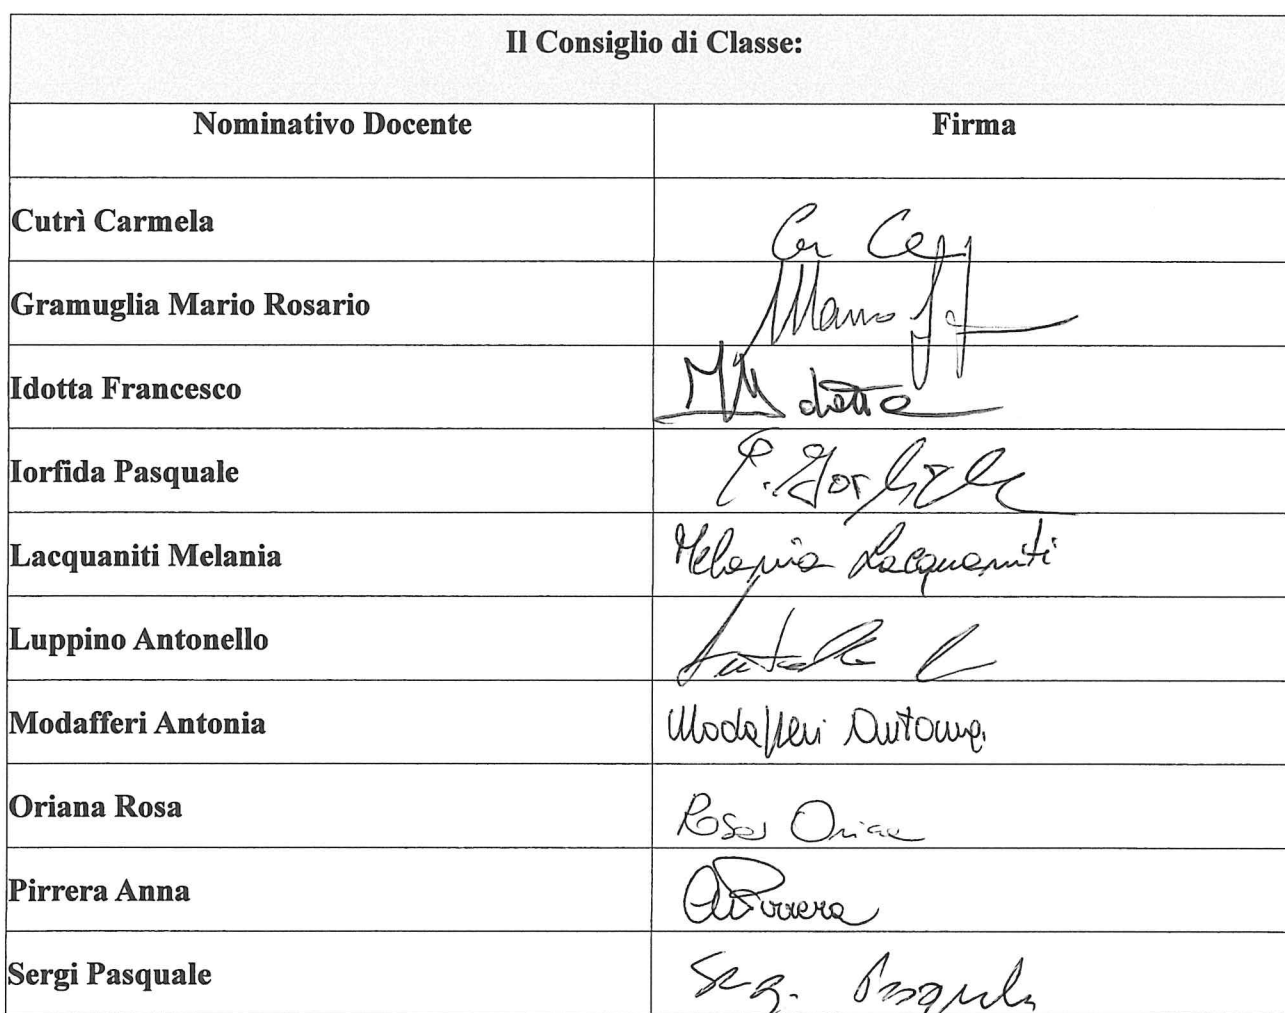 Il Consiglio di Classe:
Nominativo Docente Firma
Cutrì Carmela
Gramuglia Mario Rosario Mario
Idotta Francesco
Iorfida Pasquale P. Iorfida
Lacquaniti Melania Melania Lacquaniti
Luppino Antonello Antonello L
Modafferi Antonia Modafferi Antonia
Oriana Rosa Rosa Oriana
Pirrera Anna APirrera
Sergi Pasquale Sergi Pasquale